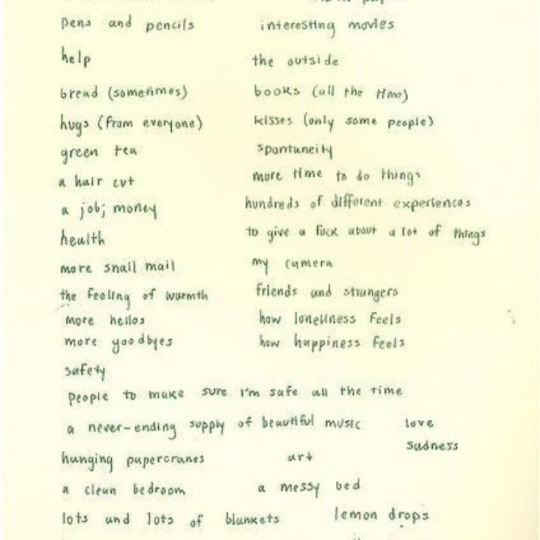 pens and pencils interesting movies
help the outside
bread (sometimes) books (all the time)
hugs (from everyone) kisses (only some people)
green tea spontaneity
a hair cut more time to do things
a job; money hundreds of different experiences
health to give a fuck about a lot of things
more snail mail my camera
the feeling of warmth friends and strangers
more hellos how loneliness feels
more goodbyes how happiness feels
safety
people to make sure I'm safe all the time
a never-ending supply of beautiful music love
sadness
hanging papercranes art
a clean bedroom a messy bed
lots and lots of blankets lemon drops